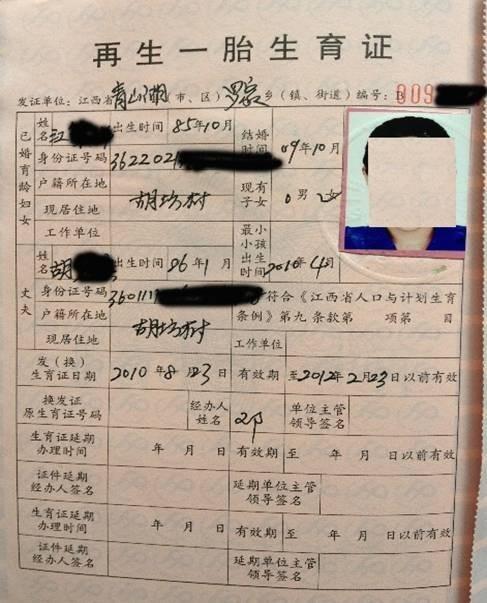 再生一胎生育证
发证单位：江西省青山湖（市、区）罗家乡（镇、街道）编号：B 009
已婚育龄妇女
姓名 江 出生时间 85年10月 结婚时间 09年10月
身份证号码 3622021
户籍所在地 胡坊村 现有子女 0男 女
现居住地
工作单位 最小小孩出生时间 2010年4月
丈夫
姓名 胡 出生时间 86年1月
身份证号码 360111 符合《江西省人口与计划生育条例》第九条款第 项第 目
户籍所在地 胡坊村
现居住地 工作单位
发（换）生育证日期 2010年8月23日 有效期 至2012年2月23日以前有效
换发证原生育证号码 经办人姓名 单位主管领导签名
生育证延期办理时间 年 月 日 有效期 至 年 月 日以前有效
证件延期经办人签名 延期单位主管领导签名
生育证延期办理时间 年 月 日 有效期 至 年 月 日以前有效
证件延期经办人签名 延期单位主管领导签名